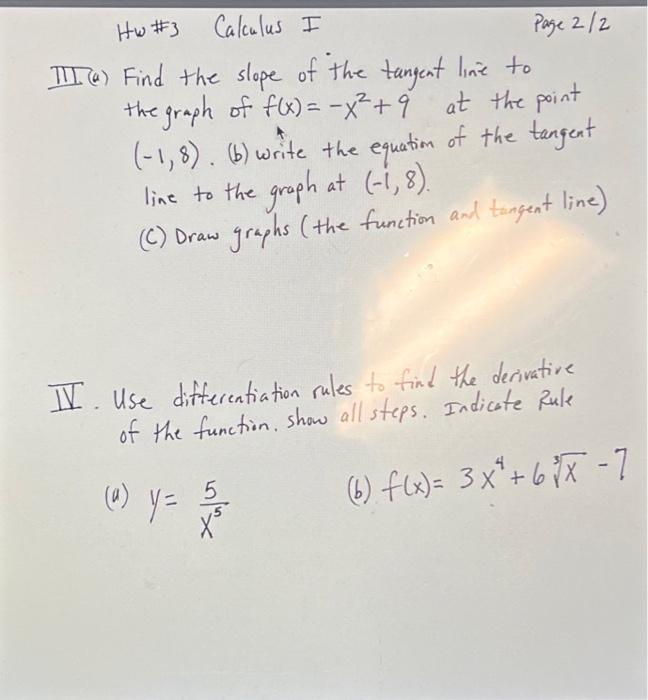 HW #3 Calculus I Page 2/2
III (a) Find the slope of the tangent line to
the graph of f(x) = -x² + 9 at the point
(-1, 8). (b) write the equation of the tangent
line to the graph at (-1, 8).
(C) Draw graphs (the function and tangent line)
IV. Use differentiation rules to find the derivative
of the function. show all steps. Indicate Rule
(a) y = 5/x⁵ (b) f(x) = 3x⁴ + 6∛x - 7